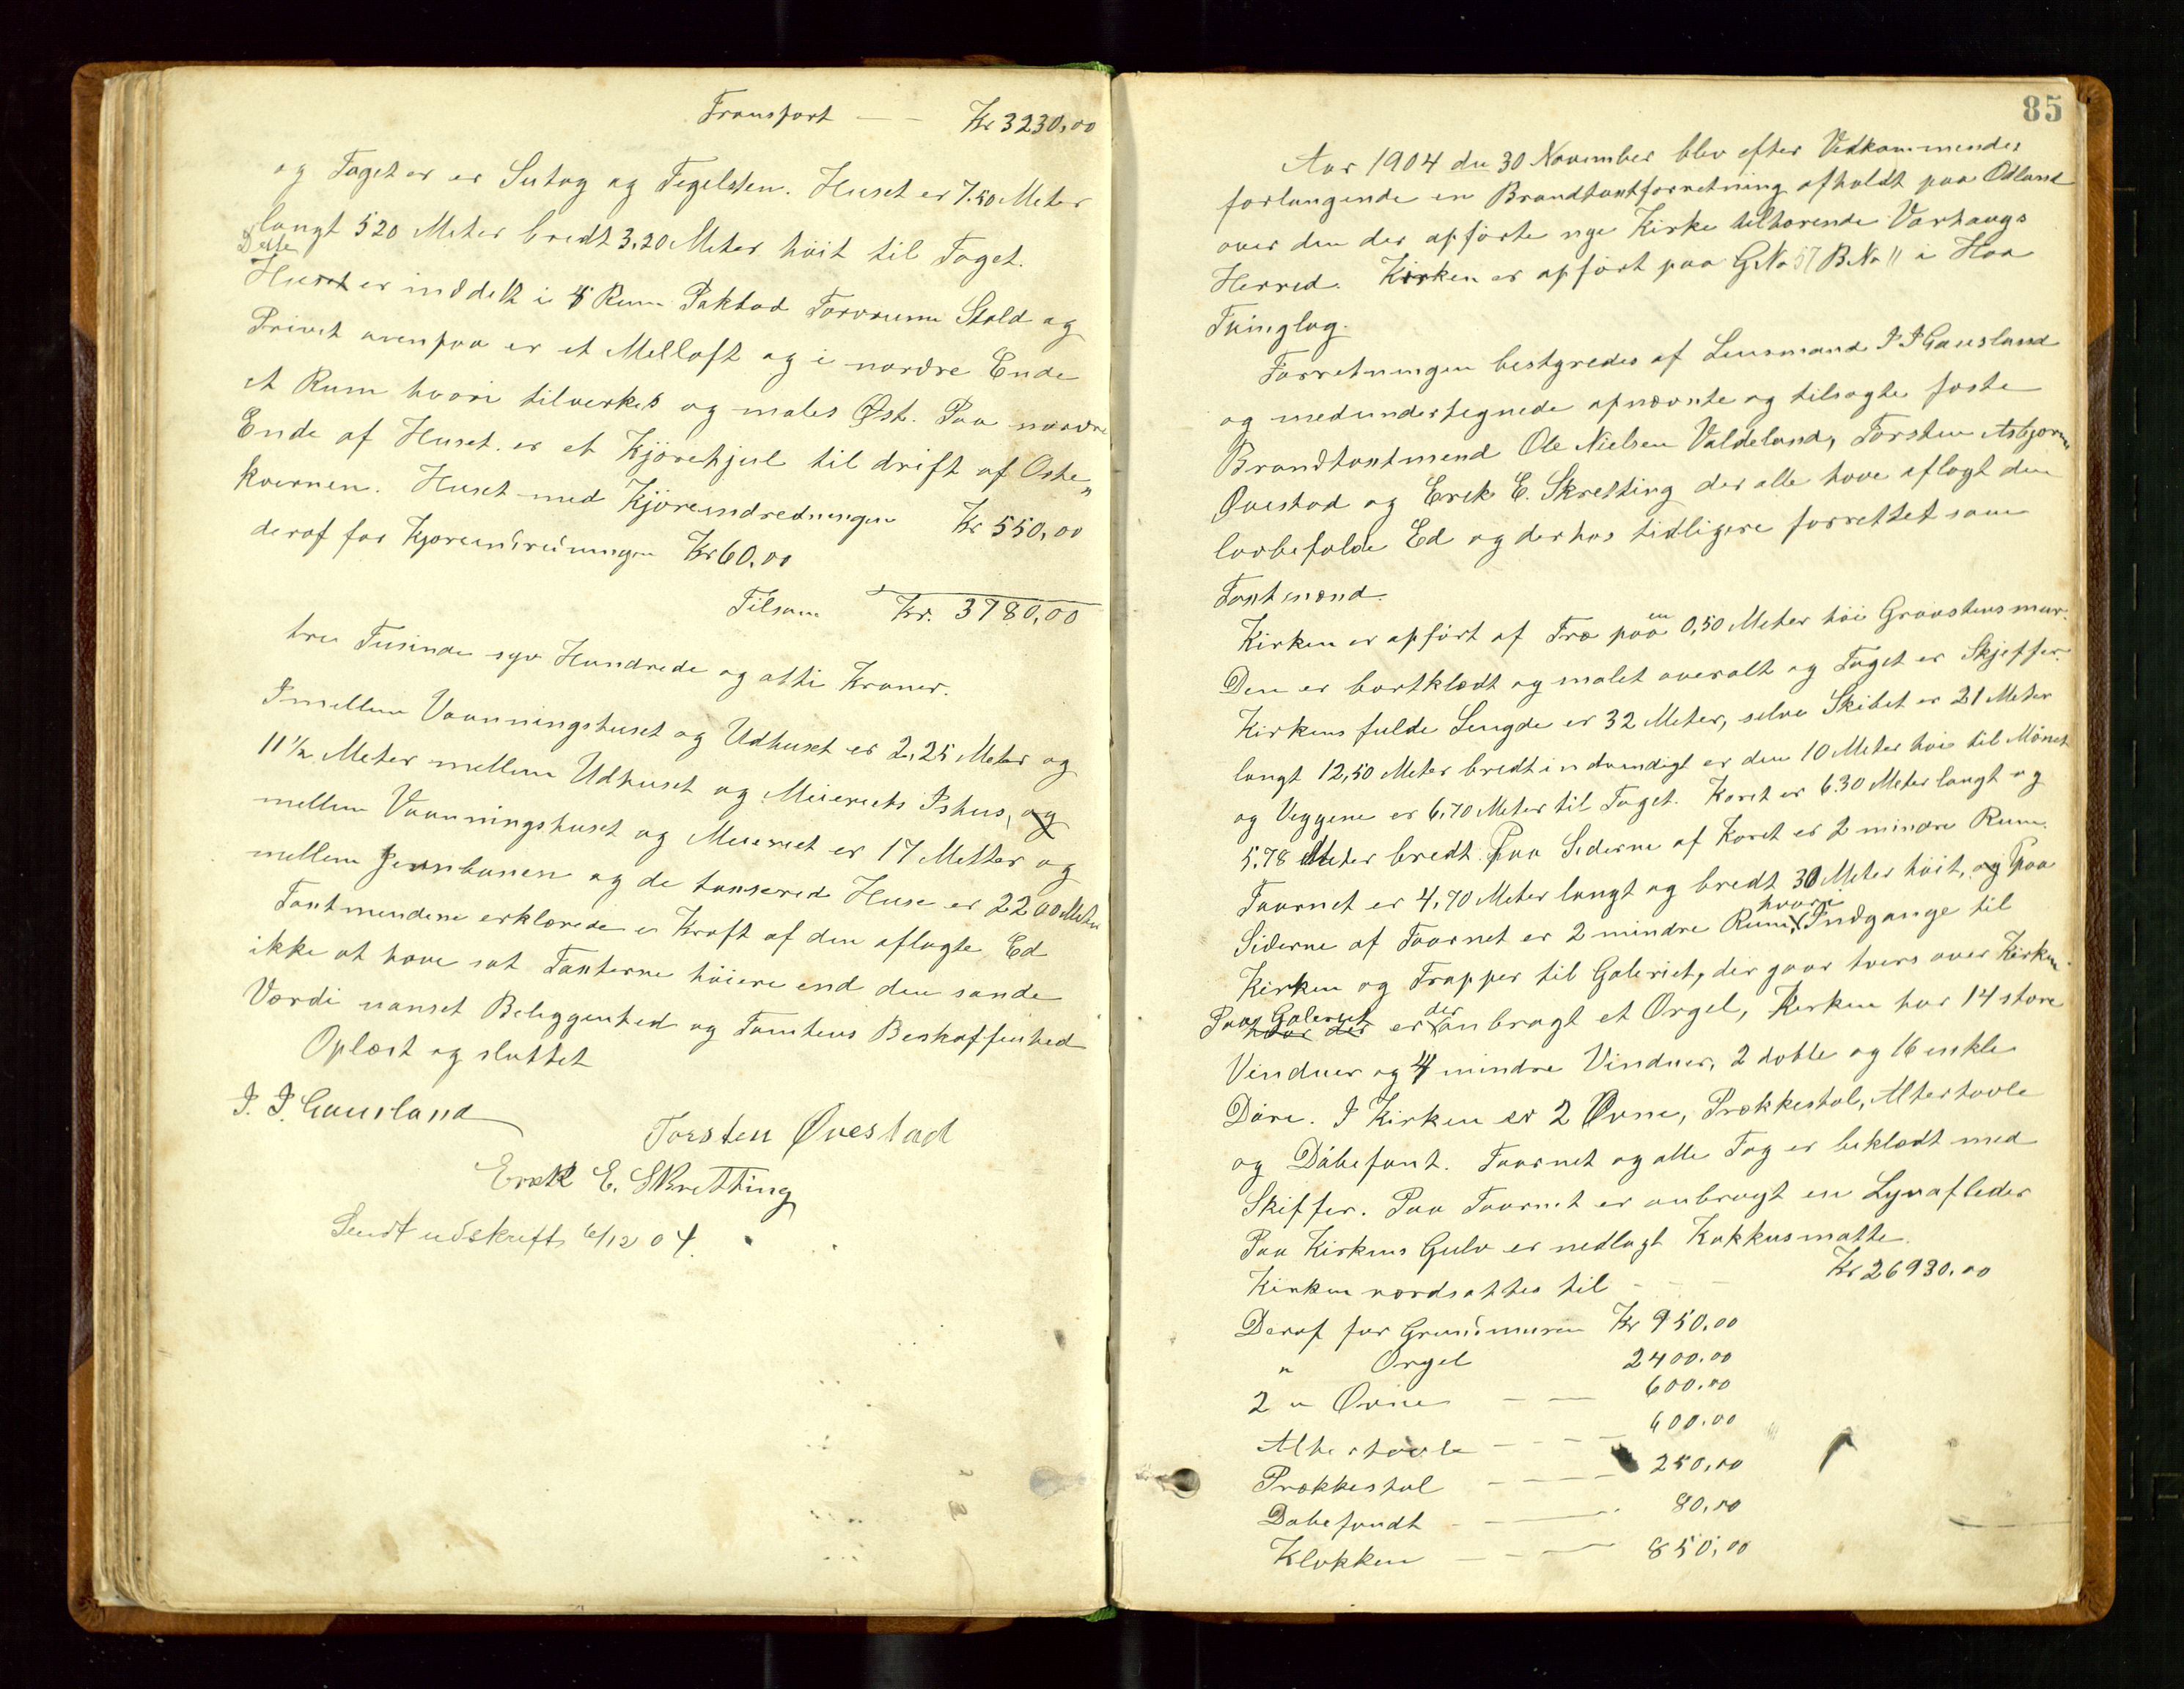 Transport — - Kr 3230,00
og Taget er er Sutag og Tegelsten. Huset er 7.50 Meter
langt 520 Meter bredt 3,20 Meter höit til Taget.
Dette
Huset er inddelt i 4 Rum Pakbod Torvrum Stald og
Privet ovenpaa er et Melloft og i nordre Ende
et Rum hvori tilverkes og males Øst. Paa nordre
Ende af Huset er et Kjörehjul til drift af Oste„
kvernen. Huset med Kjöreindredningen Kr 550,00
deraf for Kjöreindredningen Kr 60.00
Tilsam Kr. 3780,00
tre Tusinde syv Hundrede og otti Kroner.
Imellem Vaaningshuset og Udhuset er 2,25 Meter og
11 1/2 Meter mellem Udhuset og Meieriets Ishus, og
mellem Vaaningshuset og Meieriet er 17 Metter og
mellem Jernbanen og de taxerede Huse er 22 00 Meter
Taxtmendene erklærede i Kraft af den aflagte Ed
ikke at have sat Taxterne höiere end den sande
Værdi uanset Beliggenhed og Tomtens Beskaffenhed
Oplæst og sluttet
I. I. Gausland
Torsten Øvestad
Erek E. Skretting
Sendt udskrift 6/12 04.
85
Aar 1904 den 30 November blev efter Vedkommendes
forlangende en Brandtaxtforretning afholdt paa Ødland
over den der opförte nye Kirke tilhørende Varhaugs
Herred. Kirken er opfört paa G No 57 B. No 11 i Haa
Tinglag.
Forretningen bestyredes af Lensmand I I Gausland
og medundertegnede opnævnte og tilsagte faste
Brandtaxtmend Ole Nielsen Valdeland, Torsten Asbjørn
Øvestad og Erek E. Skretting der alle have aflagt den
lovbefalde Ed og derhos tidligere forrettet som
Taxtmænd.
Kirken er opfört af Træ paa en 0,50 Meter höi Graastensmur.
Den er bortklædt og malet overalt og Taget er Skjeffer.
Kirkens fulde Lengde er 32 Meter, selve Skibet er 21 Meter
langt 12,50 Meter bredt indvendigt er den 10 Meter höi til Mönet
og Veggene er 6,70 Meter til Taget. Koret er 6.30 Meter langt og
5,78 Meter bredt. Paa Siderne af Koret er 2 mindre Rum.
Taarnet er 4,70 Meter langt og bredt 30 Meter höit, og paa
Siderne af Taarnet er 2 mindre Rum, hvori Indgange til
Kirken og Trapper til Galeriet, der gaar tvers over Kirken.
Paa Galeriet er der anbragt et Orgel, Kirken har 14 store
Vinduer og 4 mindre Vinduer, 2 doble og 16 enkle
Döre. I Kirken er 2 Ovne, Prækkestol, Altertavle
og Döbefont. Taarnet og alle Tag er beklædt med
Skiffer. Paa Taarnet er anbragt en Lynafleder
Paa Kirkens Gulv er nedlagt Kokkusmatte.
Kirken værdsattes til - - - Kr 26930.00
Deraf for Grundmuren Kr 950,00
" Orgel 2400.00
2 " Ovne — — 600.00
Altertavle - - - — 600.00
Prækkestol - — — 250,00
Döbefondt - — - 80,00
Klokken — - — 850,00